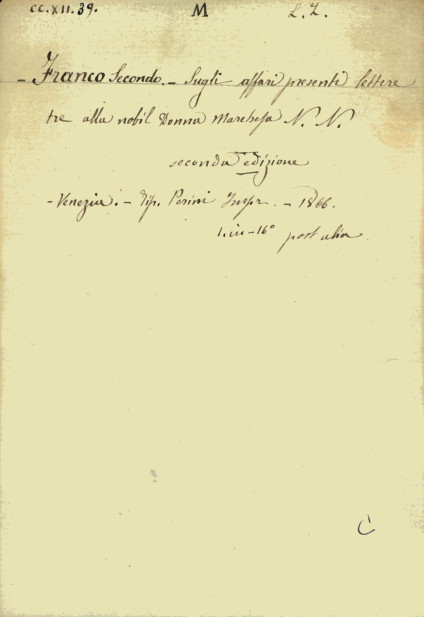 CC.XII.39. M L. Z.
- Franco Secondo. - Sugli affari presenti lettere
tre alla nobil Donna Marchesa N. N.
seconda edizione
- Venezia. - Tip. Perini Impr. - 1866.
1. in - 16° post alia
C